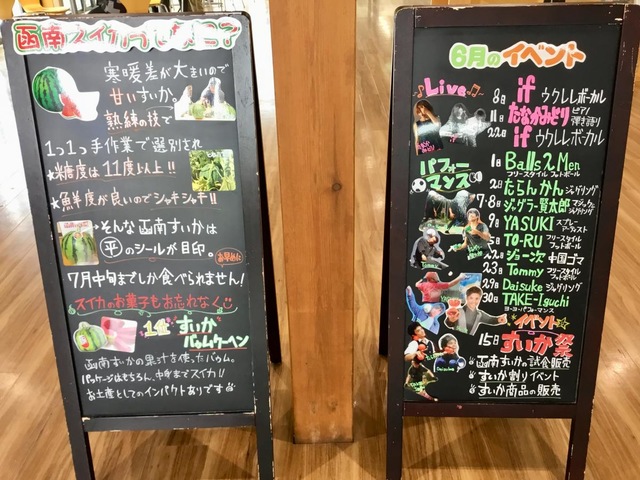 函南スイカってなに?
寒暖差が大きいので
甘いすいか。
熟練の技で
1つ1つ手作業で選別され
★糖度は11度以上!!
★鮮度が良いのでシャキシャキ!!
★そんな函南すいかは
平のシールが目印。
お早めに
7月中旬までしか食べられません!
スイカのお菓子もお忘れなく
すいか
バウムクーヘン
函南すいかの果汁を使ったバウム。
パッケージはもちろん、中身までスイカ!!
お土産としてのインパクトありです
6月のイベント
Live
8日 if ウクレレボーカル
11日 たなかみどり ピアノ弾き語り
22日 if ウクレレボーカル
パフォーマンス
1日 Balls 2 Men フリースタイルフットボール
2日 たらんかん ジャグリング
7・8日 ジャグラー賢太郎 マジックとジャグリング
9日 YASUKI スプレーアーティスト
15日 TO-RU フリースタイルフットボール
22日 ジョー次 中国ゴマ
23日 Tommy フリースタイルフットボール
29日 Daisuke ジャグリング
30日 TAKE-Iguchi
ヨーヨーパフォーマンス
イベント
15日 すいか祭
函南すいかの試食販売
すいか割りイベント
すいか商品の販売